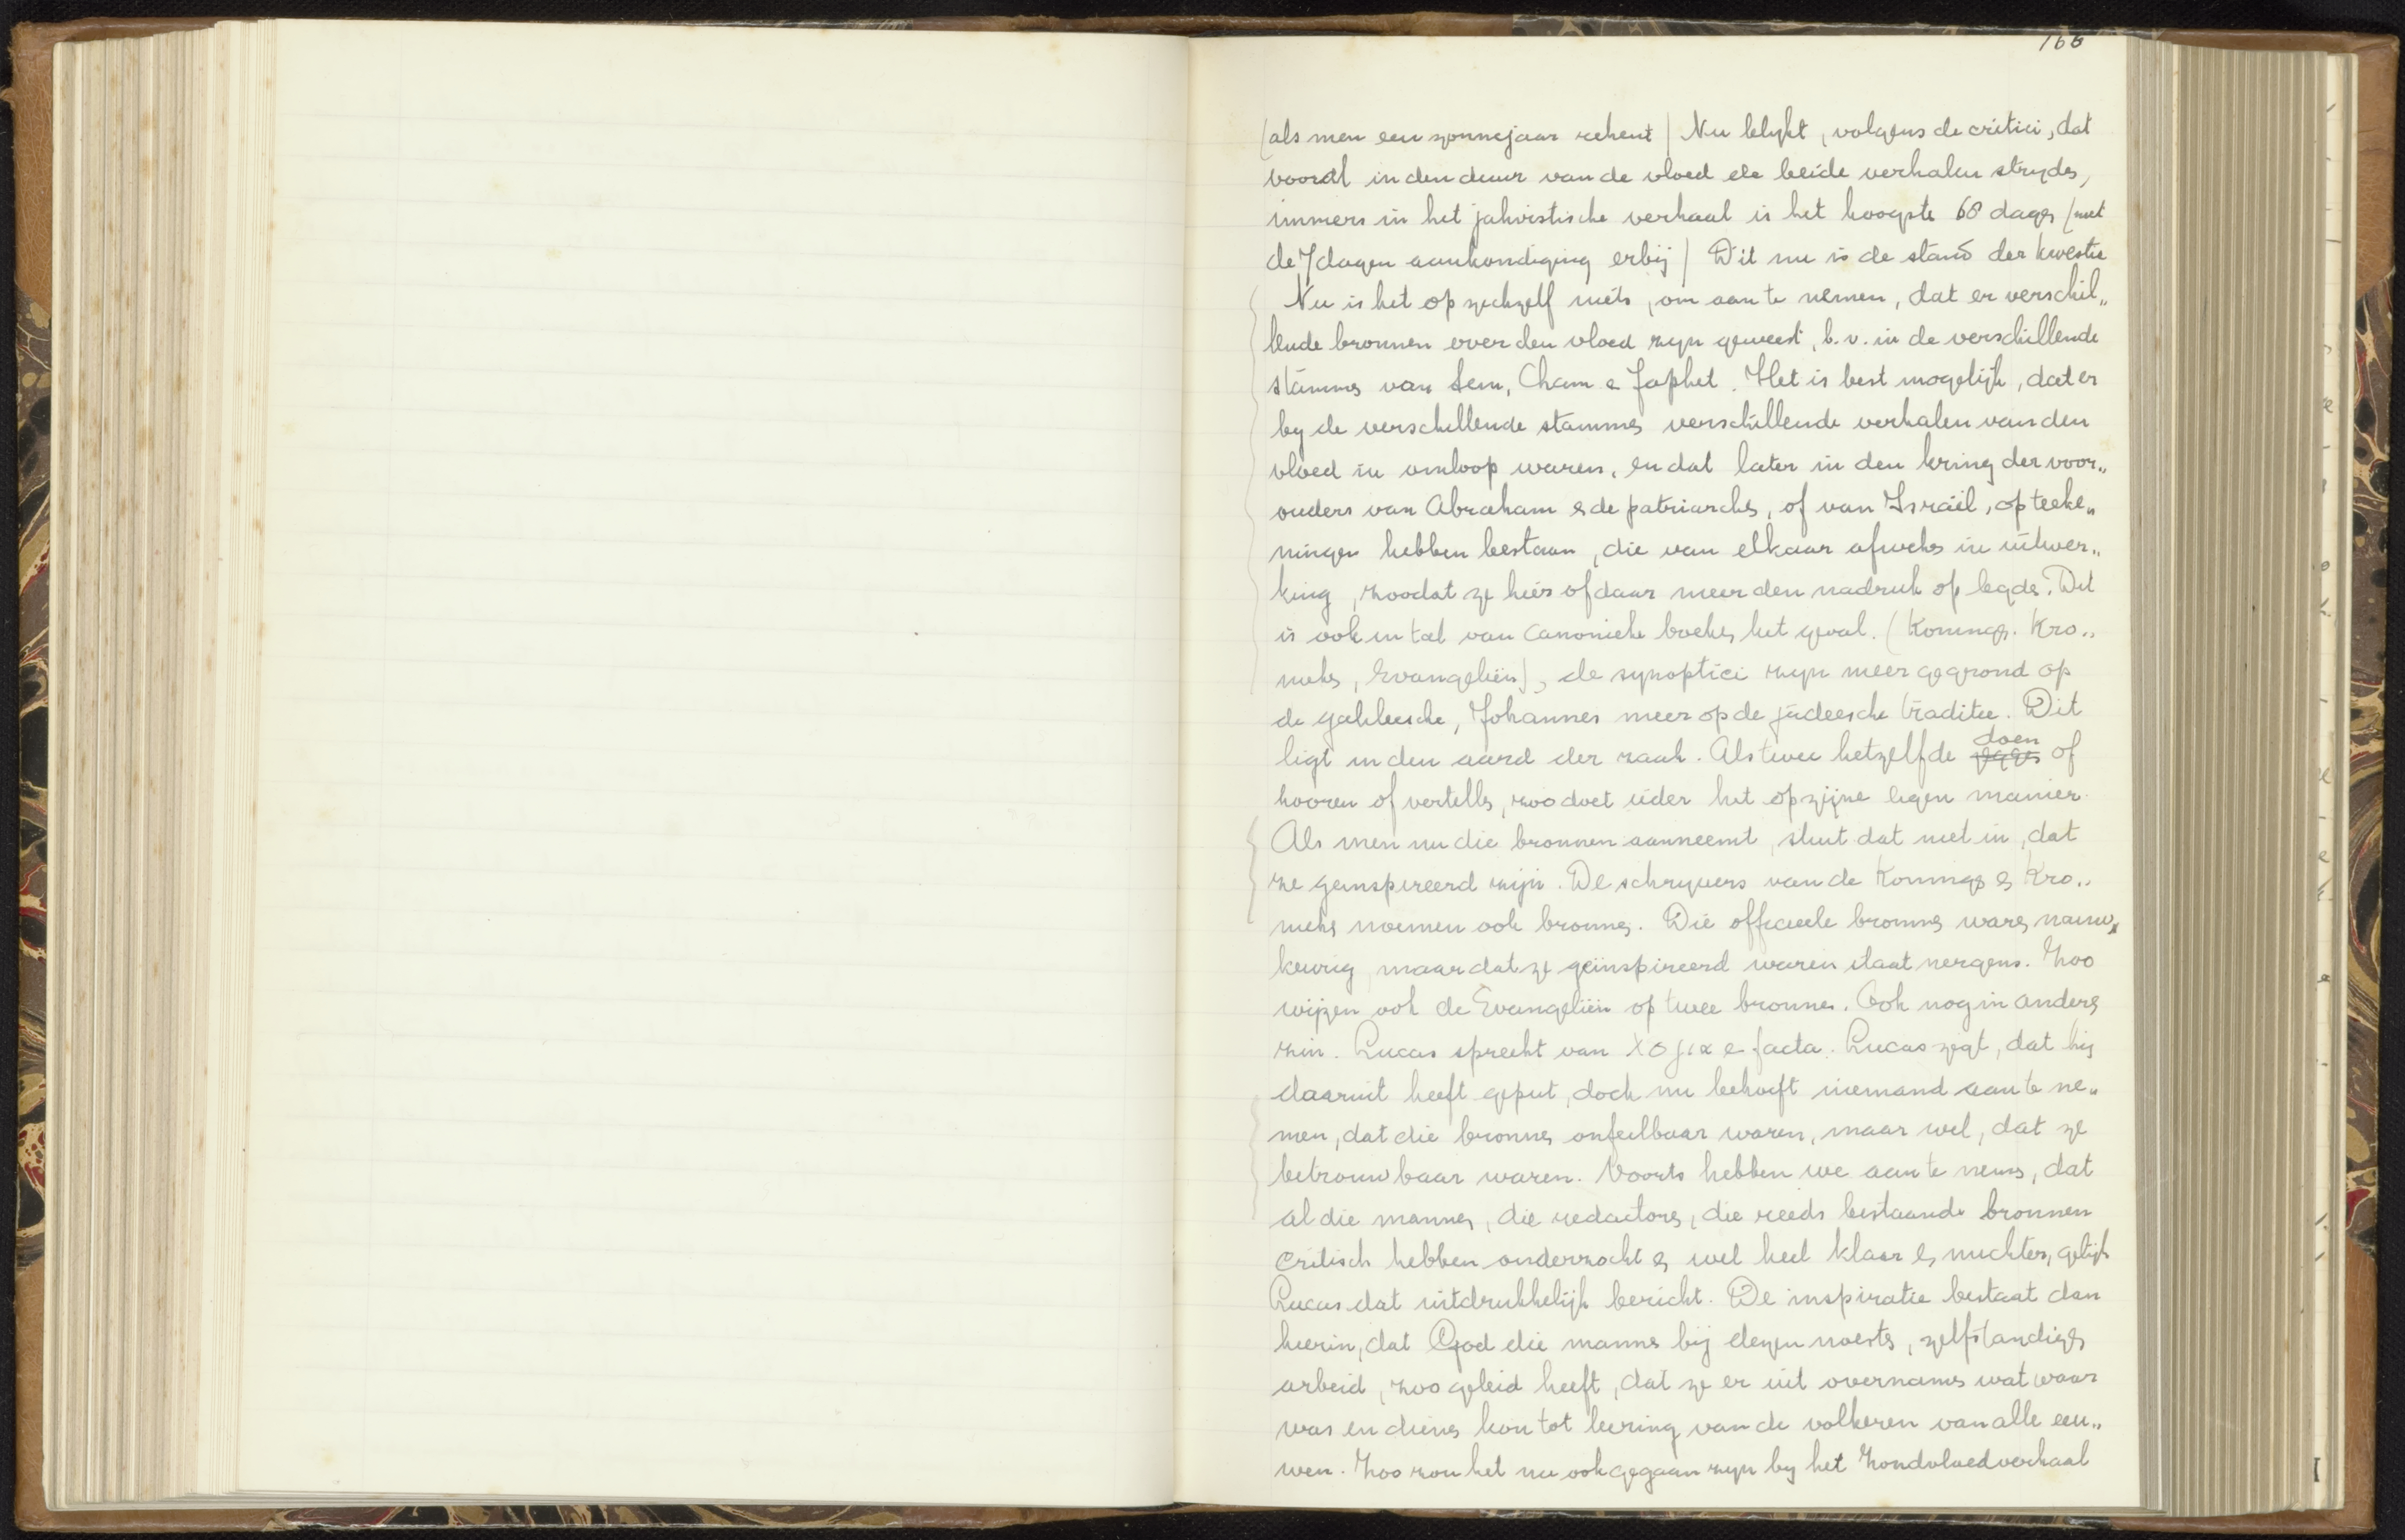 166
(als men een zonnejaar rekent) Nu blykt, volgens de critici, dat
vooral in den duur van de vloed de beide verhalen stryden,
immers in het jahvistische verhaal is het hoogste 68 dagen (met
de 7 dagen aankondiging erbij) Dit nu is de stand der kwestie
Nu is het op zichzelf niets, om aan te nemen, dat er verschil„
lende bronnen over den vloed zyn geweest, b.v. in de verschillende
stammen van Sem, Cham e Japhet. Het is best mogelijk, dat er
by de verschillende stammen verschillende verhalen van den
vloed in omloop waren, en dat later in den kring der voor„
ouders van Abraham en de patriarchen, of van Israël, opteeke„
ningen hebben bestaan, die van elkaar afweken in uitwer„
king, zoodat ze hier of daar meer den nadruk op legden. Dit
is ook in tal van canonieke boeken het geval. (Koningen. Kro„
nieken, Evangeliën), de synoptici zyn meer gegrond op
de galileesche, Johannes meer op de judeesche traditie. Dit
ligt in den aard der zaak. Als twee hetzelfde doen of
hooren of vertellen, zoo doet ieder het op zijne eigen manier.
Als men nu die bronnen aanneemt, sluit dat niet in, dat
ze geinspireerd zijn. De schryvers van de Koningen en Kro„
nieken noemen ook bronnen. Die officieele bronnen waren nauw„
keurig, maar dat ze geïnspireerd waren staat nergens. Zoo
wijzen ook de Evangeliën op twee bronnen. Ook nog in anderen
zin. Lucas spreekt van λογια e facta. Lucas zegt, dat hij
daaruit heeft geput, doch nu behoeft niemand aan te ne„
men, dat die bronnen onfeilbaar waren, maar wel, dat ze
betrouwbaar waren. Voorts hebben we aan te nemen, dat
al die mannen, die redactoren, die reeds bestaande bronnen
critisch hebben onderzocht en wel heel klaar en nuchter, gelijk
Lucas dat uitdrukkelijk bericht. De inspiratie bestaat dan
hierin, dat God die mannen bij dezen noesten, zelfstandigen
arbeid, zoo geleid heeft, dat ze er uit overnamen wat waar
was en dienen kon tot leering van de volkeren van alle eeu„
wen. Zoo zou het nu ook gegaan zyn by het Zondvloedverhaal